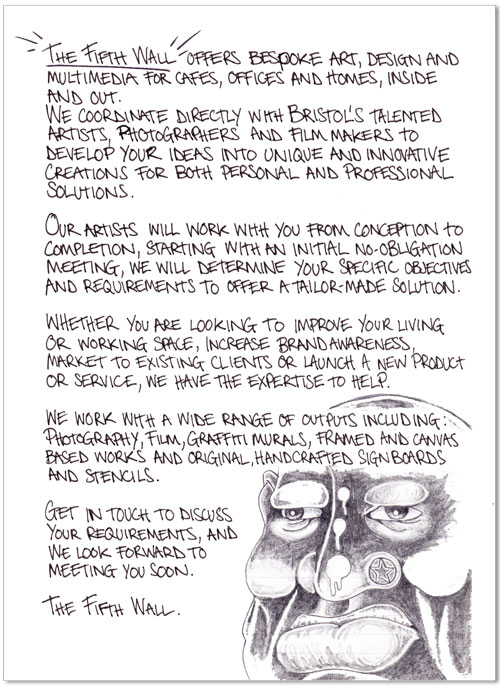 THE FIFTH WALL OFFERS BESPOKE ART, DESIGN AND
MULTIMEDIA FOR CAFES, OFFICES AND HOMES, INSIDE
AND OUT.
WE COORDINATE DIRECTLY WITH BRISTOL'S TALENTED
ARTISTS, PHOTOGRAPHERS AND FILM MAKERS TO
DEVELOP YOUR IDEAS INTO UNIQUE AND INNOVATIVE
CREATIONS FOR BOTH PERSONAL AND PROFESSIONAL
SOLUTIONS.
OUR ARTISTS WILL WORK WITH YOU FROM CONCEPTION TO
COMPLETION, STARTING WITH AN INITIAL NO-OBLIGATION
MEETING, WE WILL DETERMINE YOUR SPECIFIC OBJECTIVES
AND REQUIREMENTS TO OFFER A TAILOR-MADE SOLUTION.
WHETHER YOU ARE LOOKING TO IMPROVE YOUR LIVING
OR WORKING SPACE, INCREASE BRAND AWARENESS,
MARKET TO EXISTING CLIENTS OR LAUNCH A NEW PRODUCT
OR SERVICE, WE HAVE THE EXPERTISE TO HELP.
WE WORK WITH A WIDE RANGE OF OUTPUTS INCLUDING:
PHOTOGRAPHY, FILM, GRAFFITI MURALS, FRAMED AND CANVAS
BASED WORKS AND ORIGINAL, HANDCRAFTED SIGNBOARDS
AND STENCILS.
GET IN TOUCH TO DISCUSS
YOUR REQUIREMENTS, AND
WE LOOK FORWARD TO
MEETING YOU SOON.
THE FIFTH WALL.